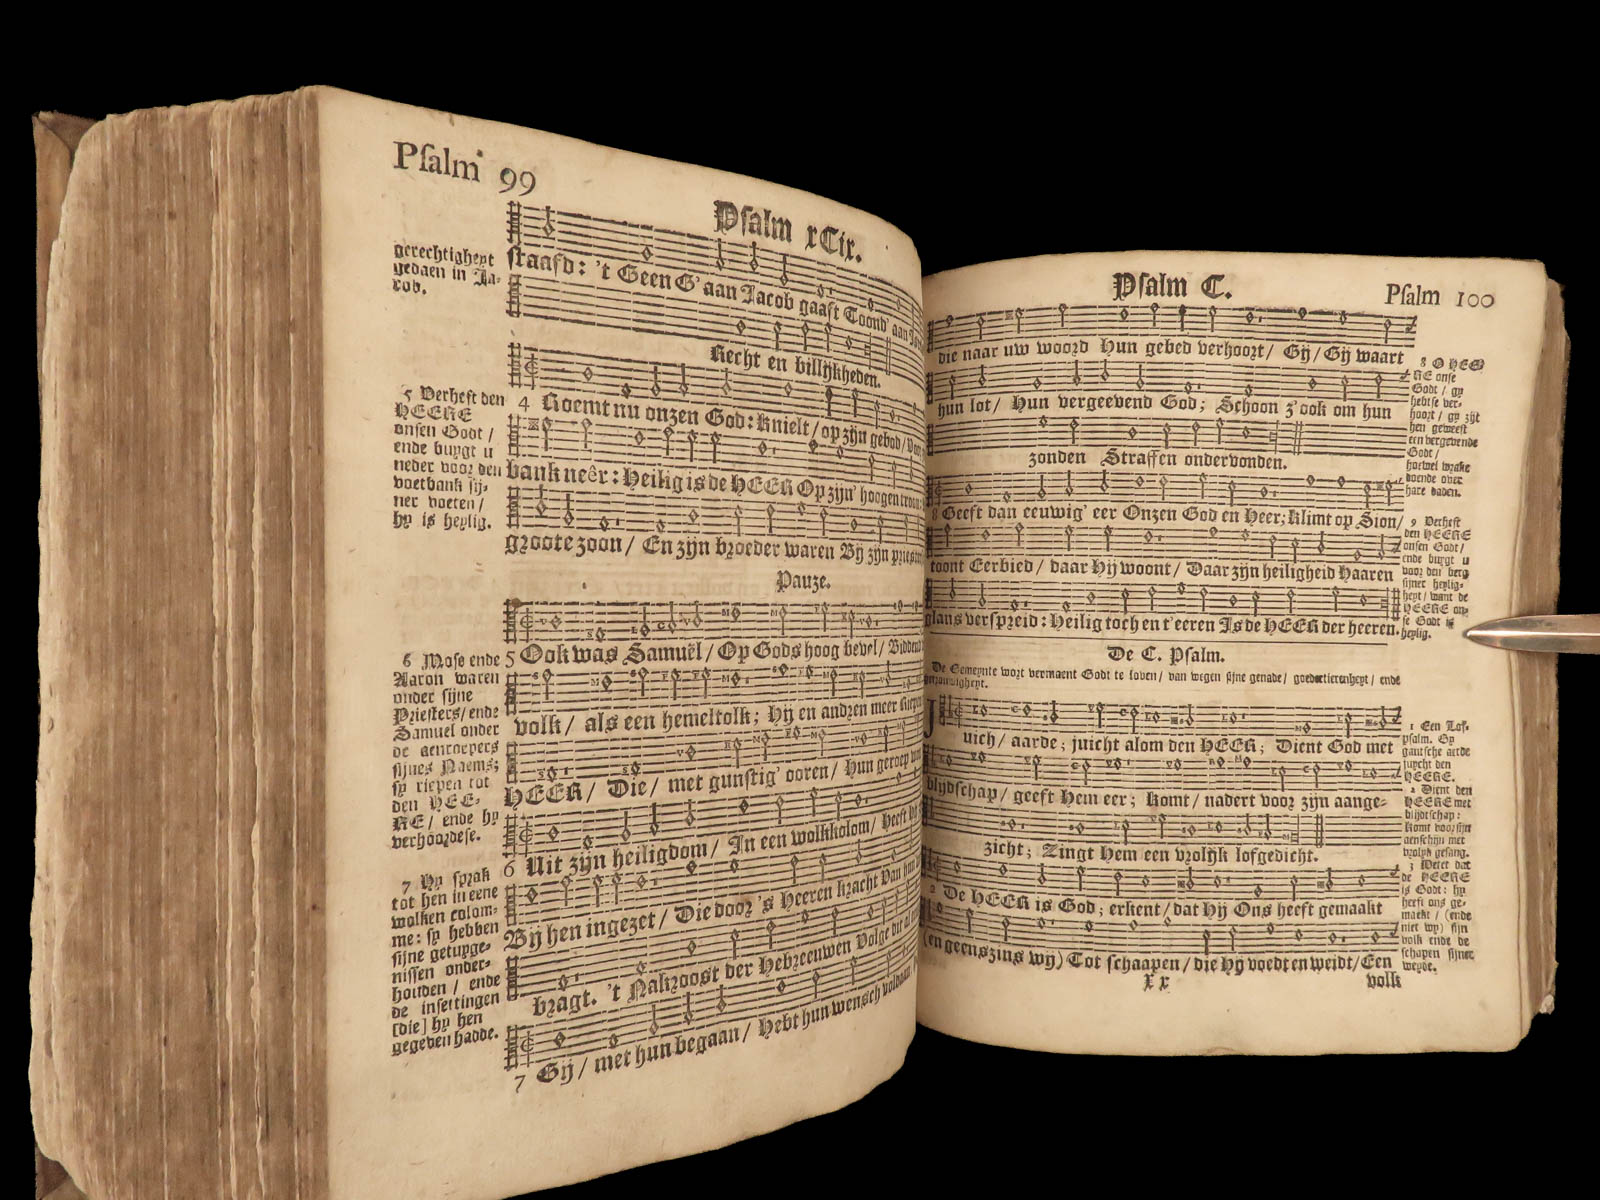 Psalm 99
Psalm xCix.
gerechtigheyt
gedaen in Ja-
cob.
straafd: 't Geen G' aan Jacob gaaft Toond' aan
Recht en billijkheden.
5 Verheft den
HEERE
onsen Godt /
ende buygt u
neder voor den
voetbank sij-
ner voeten /
hy is heylig.
4 Roemt nu onzen God: knielt / op zijn gebod /
bank neêr: Heilig is de HEER Op zijn' hoogen troon:
groote zoon / En zijn broeder waren Bij zijn
Pauze.
6 Mose ende
Aaron waren
onder sijne
Priesters / ende
Samuel onder
de aenroepers
sijnes Naems;
sy riepen tot
den HEE-
RE / ende hy
verhoordese.
5 Ook was Samuël / Op Gods hoog bevel /
volk / als een hemeltolk; Hij en andren meer
HEER / Die / met gunstig' ooren / Hun geroep
6 Uit zijn heiligdom / In een wolkkolom / Heeft
7 Hy sprak
tot hen in eene
wolken colom-
me: sy hebben
sijne getuyge-
nissen onder-
houden / ende
de insettingen
[die] hy hen
gegeven hadde.
Bij hen ingezet / Die door 's Heeren kracht Van
bragt. 't Nakroost der Hebreeuwen Volge die
7 Gij / met hun begaan / Hebt hun wensch voldaan
Psalm C.
Psalm 100
die naar uw woord Hun gebed verhoort / Gij / Gij waart
hun lot / Hun vergeevend God; Schoon z' ook om hun
zonden Straffen ondervonden.
8 O HEE-
RE onse
Godt / gy
hebtse ver-
hoort / gy zijt
hen geweest
een vergevende
Godt /
hoewel wrake
doende over
hare daden.
8 Geeft dan eeuwig' eer Onzen God en Heer; Klimt op Sion /
toont Eerbied / daar Hij woont / Daar zijn heiligheid Haaren
glans verspreid: Heilig toch en t' eeren Is de HEER der heeren.
9 Verheft
den HEERE
onsen Godt /
ende buygt u
voor den berg
sijner heylig-
heyt / want de
HEERE on-
se Godt is
heylig.
De C. Psalm.
De Gemeynte wort vermaent Godt te loven / van wegen sijne genade / goedertierenheyt / ende
Juich / aarde; juicht alom den HEER; Dient God met
blijdschap / geeft Hem eer; Komt / nadert voor zijn aange-
zicht; Zingt Hem een vrolijk lofgedicht.
1 Een Lof-
psalm. Gy
gantsche aerde
juycht den
HEERE.
2 Dient den
HEERE met
blijdtschap:
komt voor sijn
aenschijn met
vrolyk gesang.
3 Weet dat
de HEERE
is Godt: hy
heeft ons ge-
maekt / (ende
niet wy) sijn
volk ende de
schapen sijner
weyde.
2 De HEER is God; erkent / dat Hij Ons heeft gemaakt
(en geenszins wij) Tot schaapen / die Hij voedt en weidt / Een
X x
volk